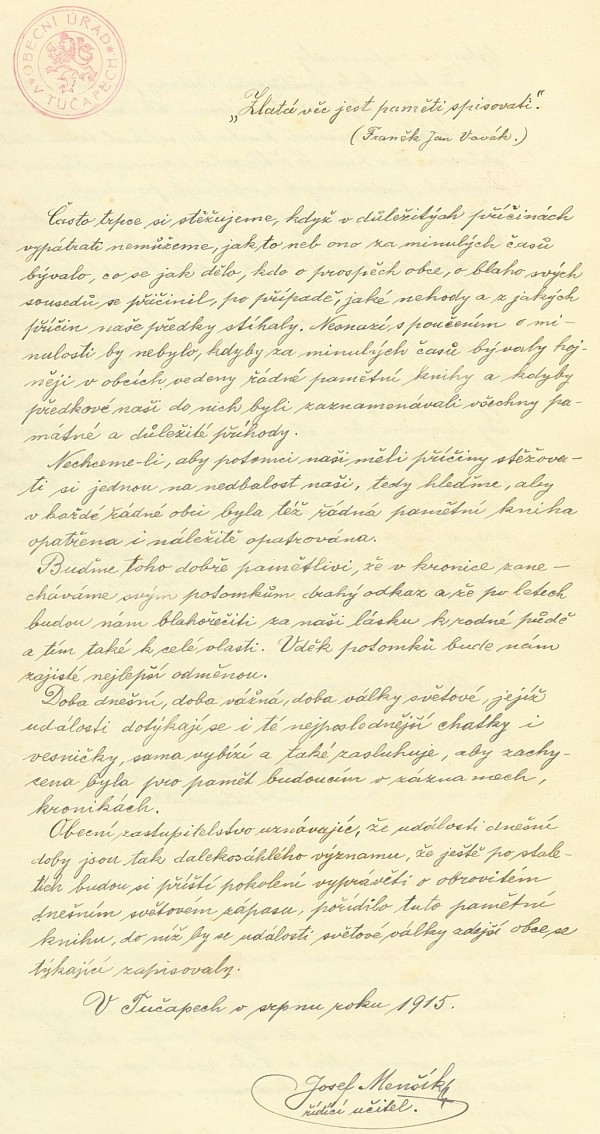 OBECNÍ ÚŘAD
V TUČAPECH
„Zlatá věc jest paměti spisovati“.
(Franěk Jan Vavák.)
Často trpce si stěžujeme, když v důležitých příčinách
vypátrati nemůžeme, jak to neb ono za minulých časů
bývalo, co se jak dělo, kdo o prospěch obce, o blaho svých
sousedů se přičinil, po případě, jaké nehody a z jakých
příčin naše předky stíhaly. Nesnází, s poučením o mi-
nulosti by nebylo, kdyby za minulých časů bývaly hoj-
něji v obcích vedeny řádné pamětní knihy a kdyby
předkové naši do nich byli zaznamenávali všechny pa-
mátné a důležité příhody.
Nechceme-li, aby potomci naši měli příčiny stěžova-
ti si jednou na nedbalost naši, tedy hleďme, aby
v každé řádné obci byla též řádná pamětní kniha
opatřena i náležitě opatrována.
Buďme toho dobře pamětlivi, že v kronice zane-
cháváme svým potomkům drahý odkaz a že po letech
budou nám blahořečiti za naši lásku k rodné půdě
a tím také k celé vlasti. Vděk potomků bude nám
zajisté nejlepší odměnou.
Doba dnešní, doba vážná, doba války světové, jejíž
události dotýkají se i té nejposlednější chatky i
vesničky, sama vybízí a také zasluhuje, aby zachy-
cena byla pro paměť budoucím v záznamech,
kronikách.
Obecní zastupitelstvo uznávajíc, že události dnešní
doby jsou tak dalekosáhlého významu, že ještě po stale-
tích budou si příští pokolení vyprávěti o obrovitém
dnešním světovém zápasu, pořídilo tuto pamětní
knihu, do níž by se události světové války zdejší obce se
týkající zapisovaly.
V Tučapech v srpnu roku 1915.
Josef Menšík
řídící učitel.